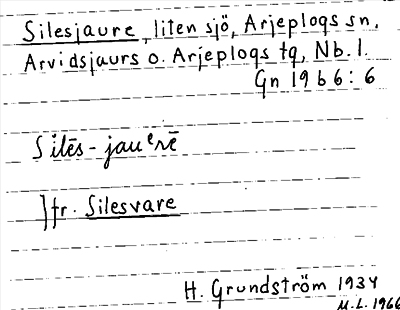 Silesjaure, liten sjö, Arjeplogs sn,
Arvidsjaurs o. Arjeplogs tg, Nb. l.
Gn 1966: 6
Silēs-jauᵉrē
] fr. Silesvare
H. Grundström 1934
M.L. 1966